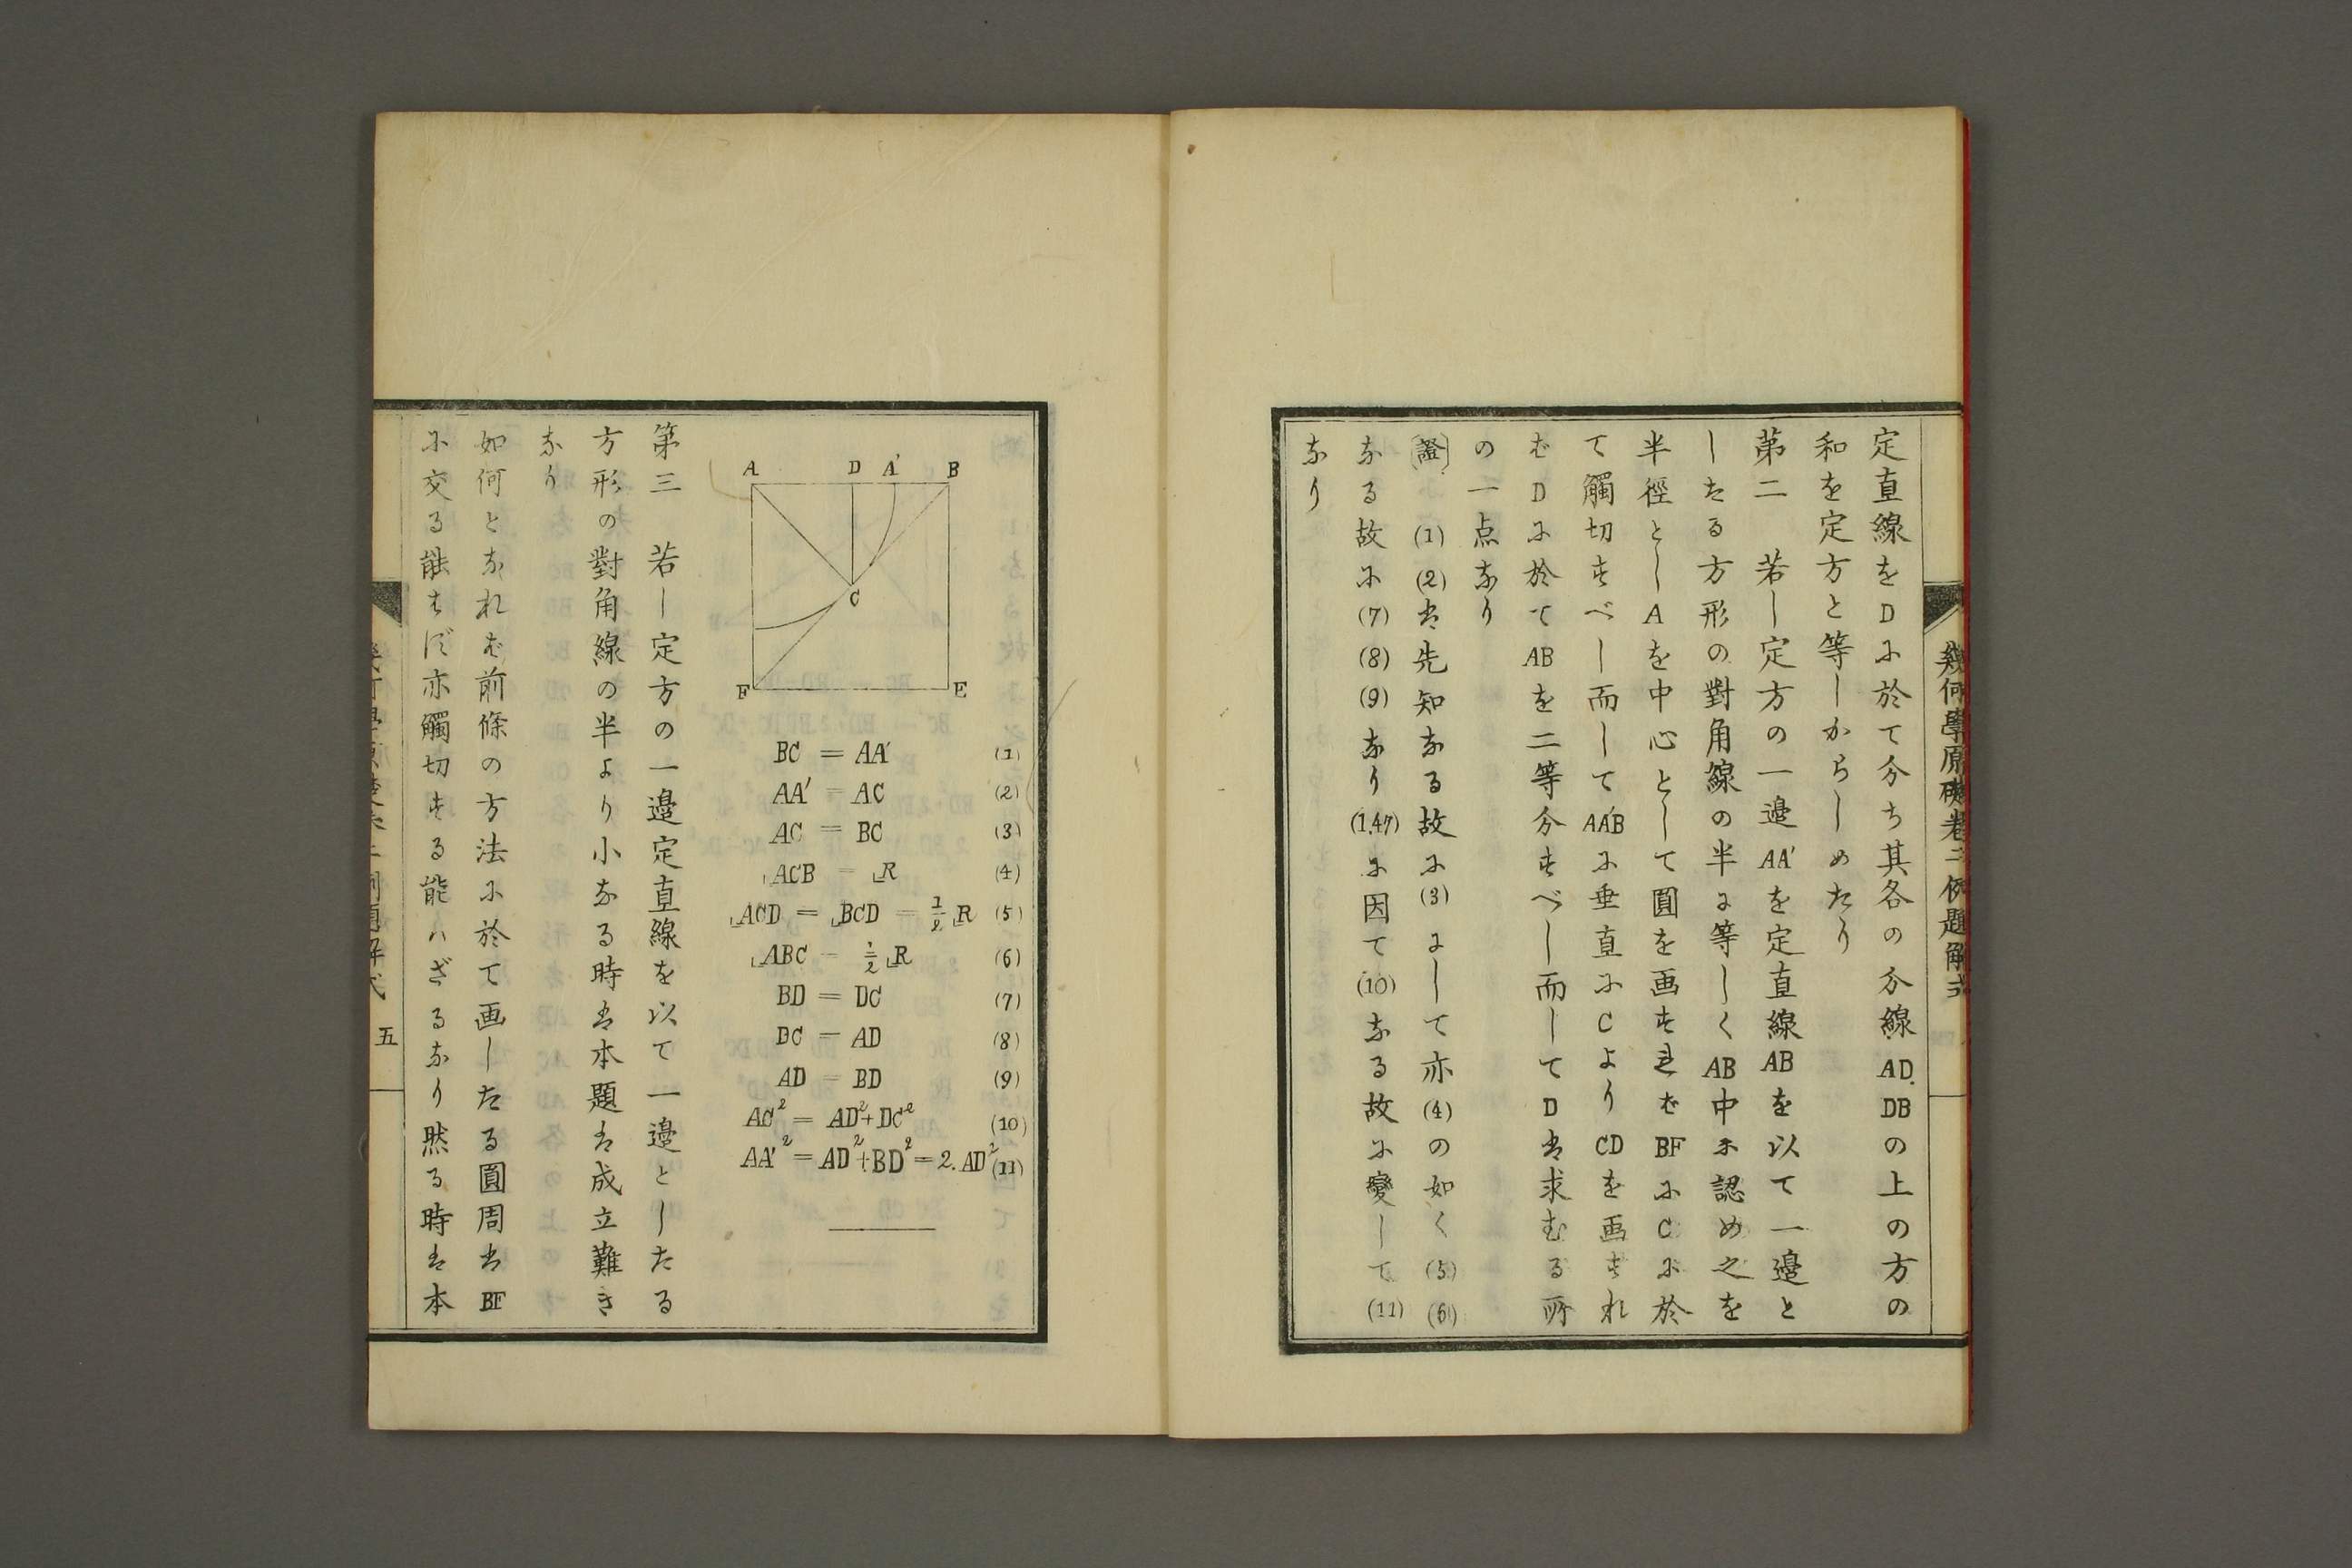 幾何學原礎卷二例題解式
定直線をDに於て分ち其各の分線AD.DBの上の方の
和を定方と等しからしめたり
第二 若し定方の一邉AA'を定直線ABを以て一邉と
したる方形の對角線の半に等しくAB中に認め之を
半徑としAを中心として圓を画すればBFにCに於
て觸切すべし而してAA'Bに垂直にCよりCDを画すれ
ばDに於てABを二等分すべし而してDは求むる所
の一点なり
證 (1)(2)は先知なる故に(3)よして亦(4)の如く(5)(6)
なる故に(7)(8)(9)なり(1,47)に因て(10)なる故に變して(11)
なり
A D A' B
C
F E
BC = AA' (1)
AA' = AC (2)
AC = BC (3)
⌞ACB = ⌞R (4)
⌞ACD = ⌞BCD = 1/2⌞R (5)
⌞ABC = 1/2⌞R (6)
BD = DC (7)
DC = AD (8)
AD = BD (9)
AC² = AD²+DC² (10)
AA'² = AD²+BD² = 2.AD² (11)
第三 若し定方の一邉定直線を以て一邉としたる
方形の對角線の半より小なる時は本題は成立難き
なり
如何となれば前條の方法に於て画したる圓周はBF
に交る能はず亦觸切する能ハざるなり然る時は本
五